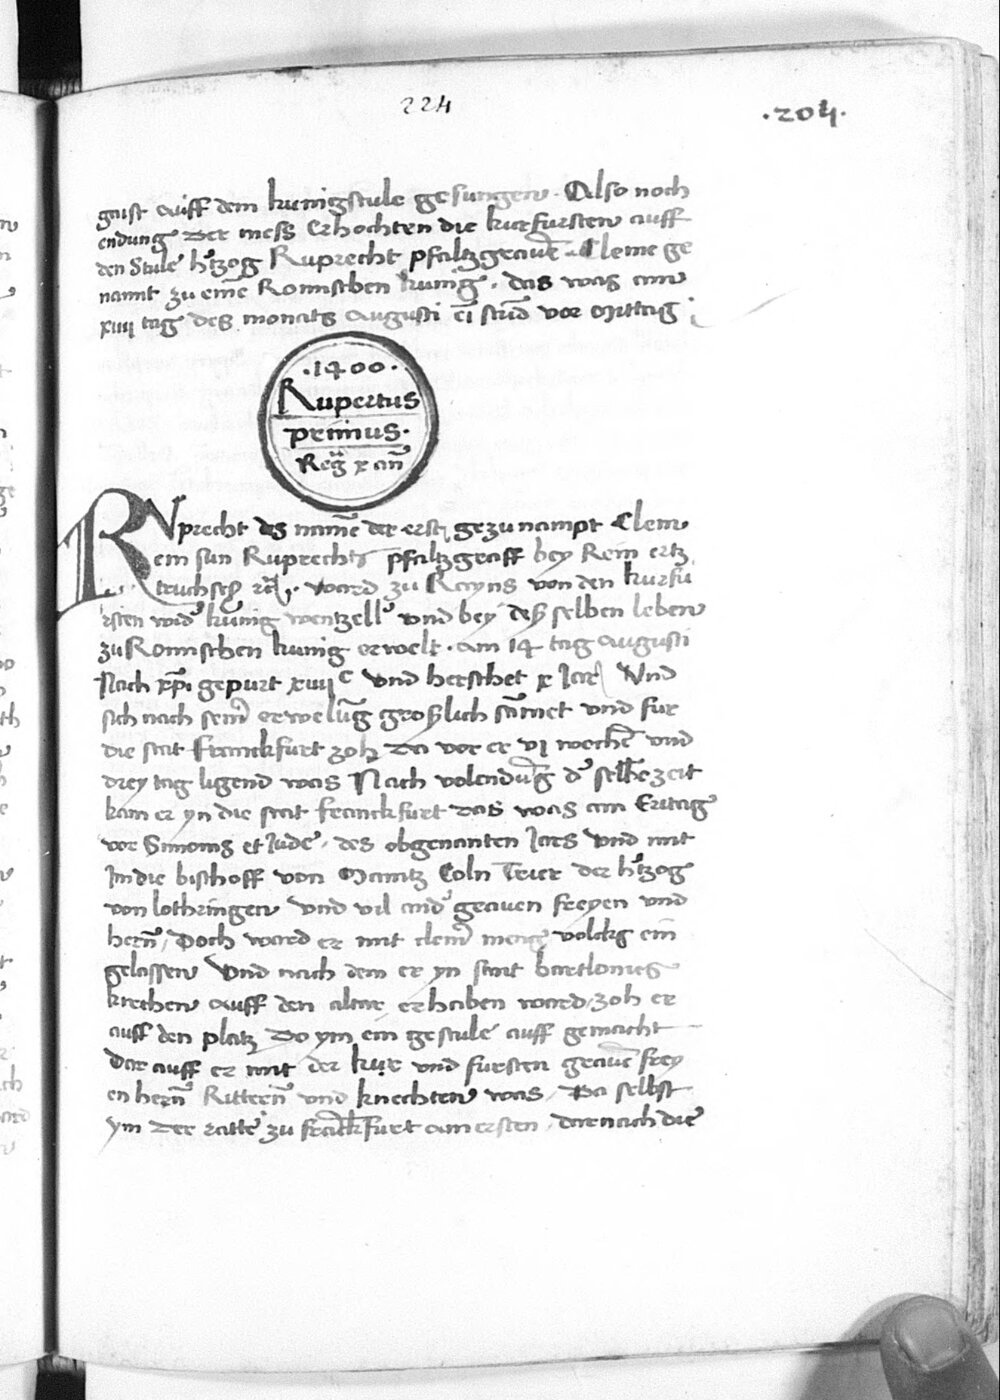 224
.204.
geist auff dem kunigstule gesungen. Also noch
endung der mess Erhochten die kurfursten auff
den Stule h'tzog Ruprecht pfaltzgraue Cleme ge
nannt zu eine Romischen kunig. das was am
xiiii tag des monats Augusti ei stund vor Mittag
.1400.
Rupertus
primus.
Reg x an
RVprecht des name der erst gezunampt Clem
ein sun Ruprechts pfaltzgraff bey Rein ertz
truchses ward zu Rayns von den kurfu
rsten wid' kunig wentzell vnd bey des selben leben
zu Romischen kunig erwelt. am 14 tag augusti
Nach xpi gepurt xiiii c vnd herschet x Jar Vnd
sich nach sein' erwelung groslich samet vnd fur
die stat Franckfurt zoh Da vor er vi wochen vnd
drey tag ligend was Nach volendung d' selbe zeit
kam er yn die stat franckfurt das was am Eritag
vor Simonis et Jude, des obgenanten Jars Vnd mit
Im die bischoff von Maintz Coln Trier der h'tzog
von lothringen Vnd vil and' grauen freyen vnd
hern, Doch ward er mit clein' menig volckg ein
gelassen Vnd nach dem er yn sant bartlomes
kirchen auff den altar erhaben ward, zoh er
auff den platz Do ym ein gestule auff gemacht
Dar auff er mit der kur vnd fursten graue frey
en hern Rittern vnd knechten was, Da selbst
ym der ratte zu franckfurt am ersten, darnach die